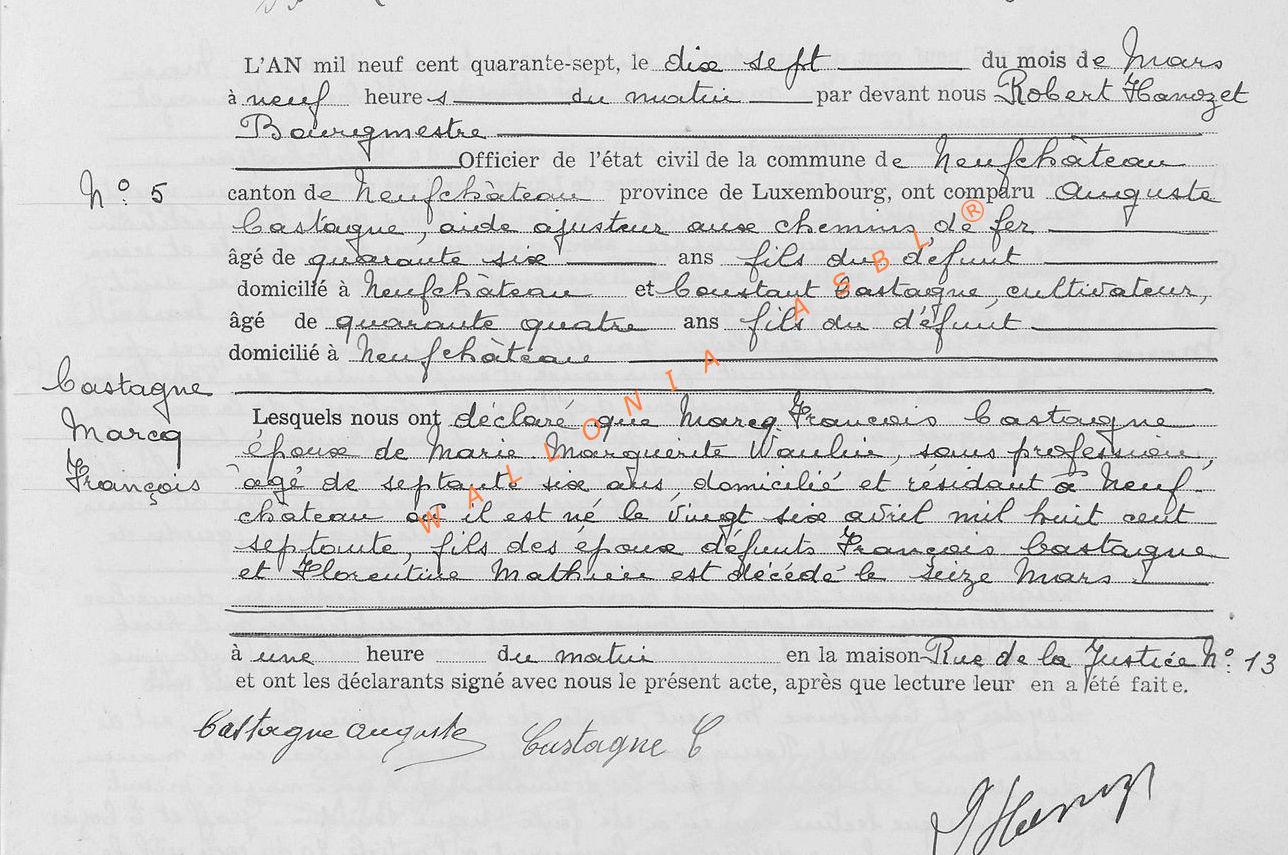 L'AN mil neuf cent quarante-sept, le dix sept du mois de Mars
à neuf heures du matin par devant nous Robert Hanozet
Bourgmestre
Officier de l'état civil de la commune de Neufchâteau
N° 5
canton de Neufchâteau province de Luxembourg, ont comparu Auguste
Castagne, aide ajusteur aux chemins de fer
âgé de quarante six ans fils du défunt
domicilié à Neufchâteau et Constant Castagne, cultivateur,
âgé de quarante quatre ans fils du défunt
domicilié à Neufchâteau
Castagne
Marcq
François
Lesquels nous ont déclaré que Marcq François Castagne
époux de Marie Marguerite Waulin, sans profession,
âgé de septante six ans domicilié et résidant à Neuf-
château où il est né le vingt six avril mil huit cent
septante, fils des époux défunts François Castagne
et Florentine Mathieu est décédé le seize Mars
à une heure du matin en la maison Rue de la Justice N° 13
et ont les déclarants signé avec nous le présent acte, après que lecture leur en a été faite.
Castagne Auguste Castagne C
WALLONIA ASBL ®